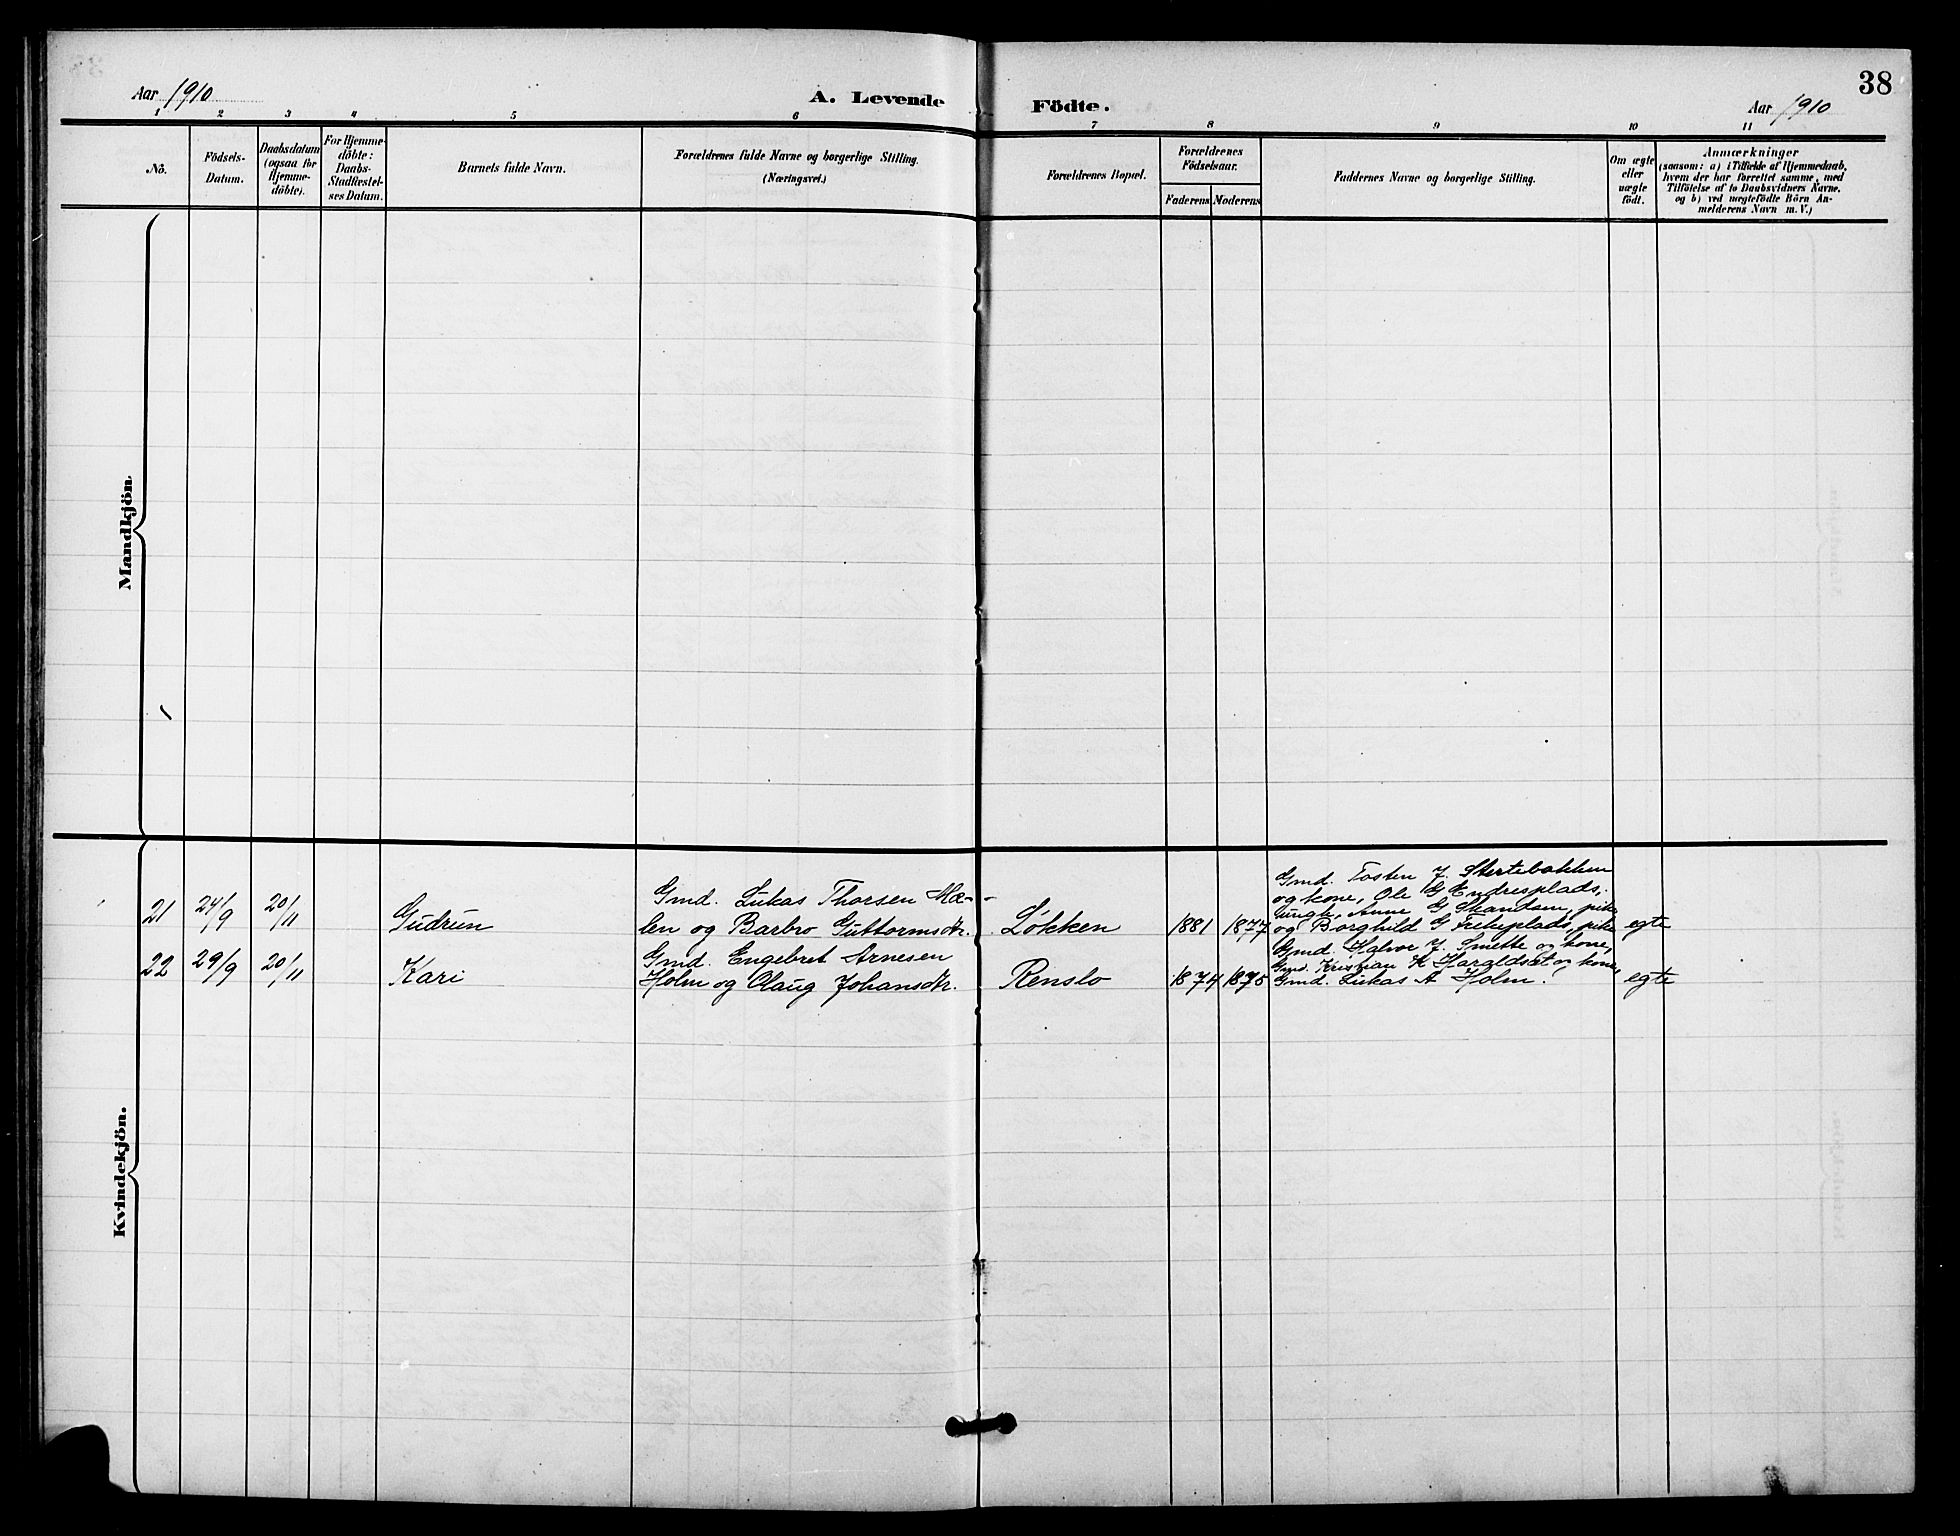 38
Aar 1910
A. Levende Födte.
Aar 1910
1 2 3 4 5 6 7 8 9 10 11
No.
Födsels-
Datum.
Daabsdatum
(ogsaa for
Hjemme-
döbte).
For Hjemme-
döbte:
Daabs-
Stadfæstel-
ses Datum.
Barnets fulde Navn.
Forældrenes fulde Navne og borgerlige Stilling.
(Næringsvei.)
Forældrenes Bopæl.
Forældrenes
Födselsaar.
Faderens Moderens
Faddernes Navne og borgerlige Stilling.
Om ægte
eller
uægte
födt.
Anmærkninger
(saasom: a) i Tilfælde af Hjemmedaab,
hvem der har forrettet samme, med
Tilföielse af to Daabsvidners Navne.
og b) ved uægtefödte Börn An-
melderens Navn m. V.)
Mandkjön.
Kvindekjön.
21 24/9 20/11 Gudrun
Gmd. Lukas Thorsen Mæ-
len og Barbro Guttormsdtr.
Løkken 1881 1877
Gmd. Tosten J. Stertebakken
og kone, Ole G Endresplads,
ungk, Anne G Skandam, pike
og Borghild G pike
egte
22 29/9 20/11 Kari
Gmd. Engebret Arnesen
Holm og Olaug Johansdtr.
Renslo 1874 1875
Gmd. Halvor J. Smette og kone,
Gmd. Kristian K Haraldset og kone,
Gmd. Lukas A Holm.
egte